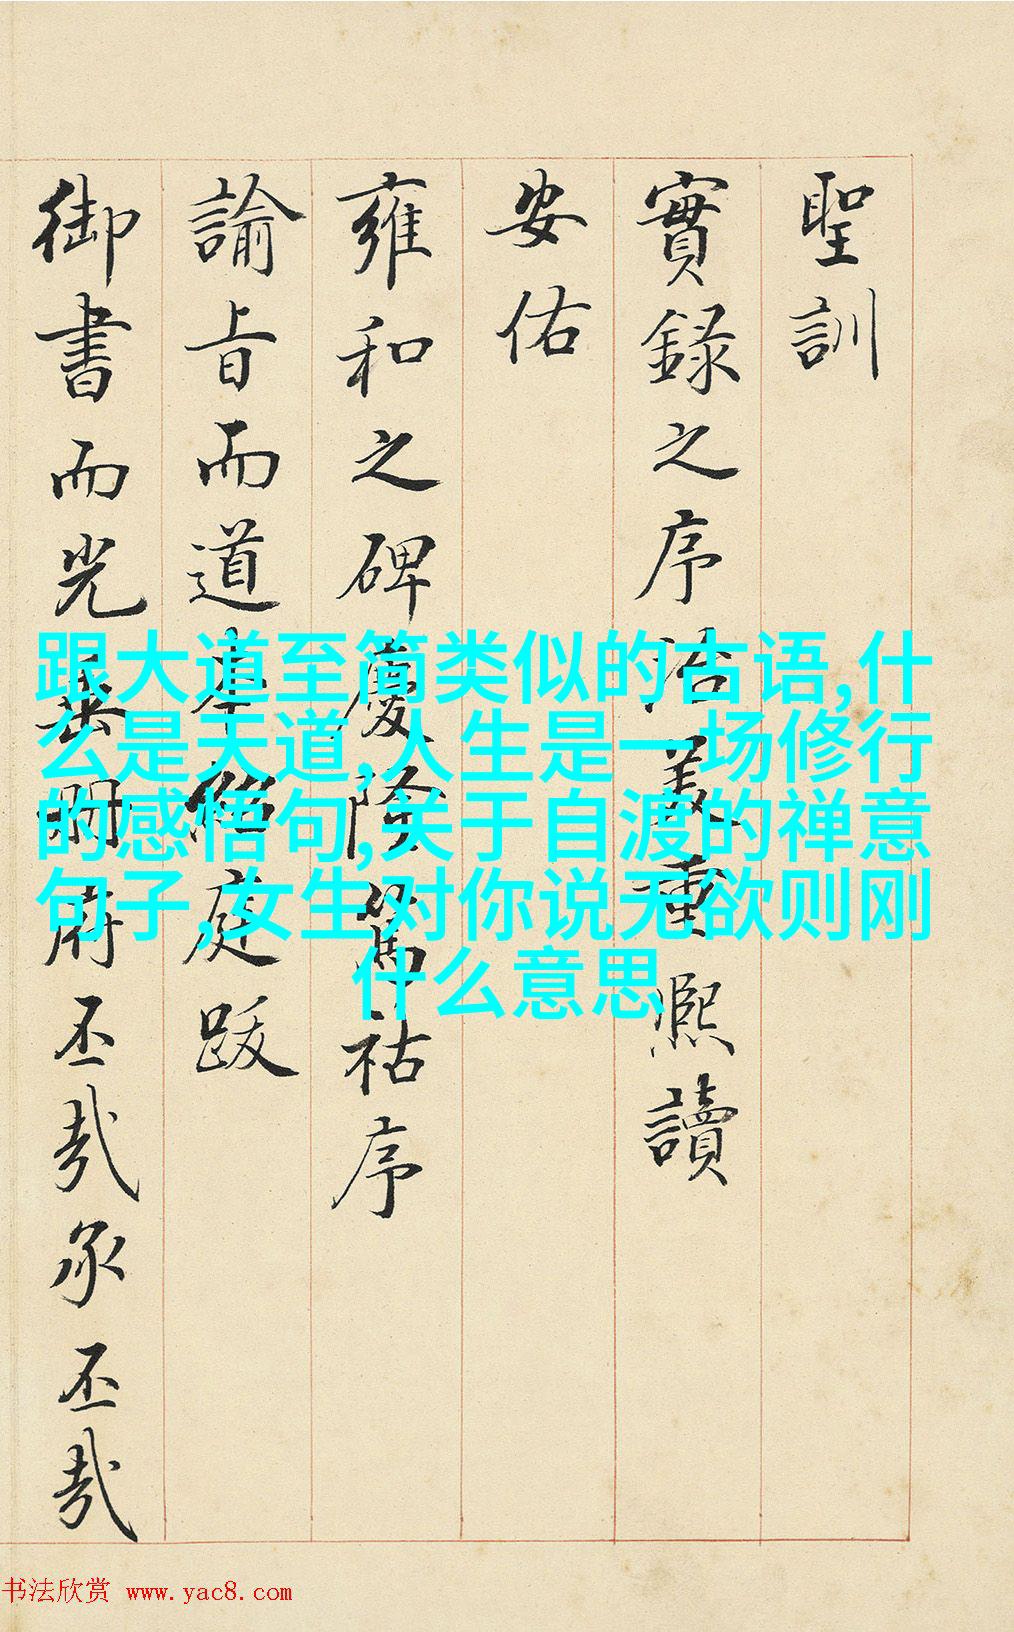 聖訓
實録之序重熙讀
安佑
雍和之碑慶隆篤祜序
諭旨而道紹庭跋
御書而光垂冊府丕哉承丕哉
跟大道至简类似的古语,什
么是天道,人生是一场修行
的感悟句,关于自渡的禅意
句子,女生对你说无欲则刚
什么意思
书法欣赏 www.yac8.com